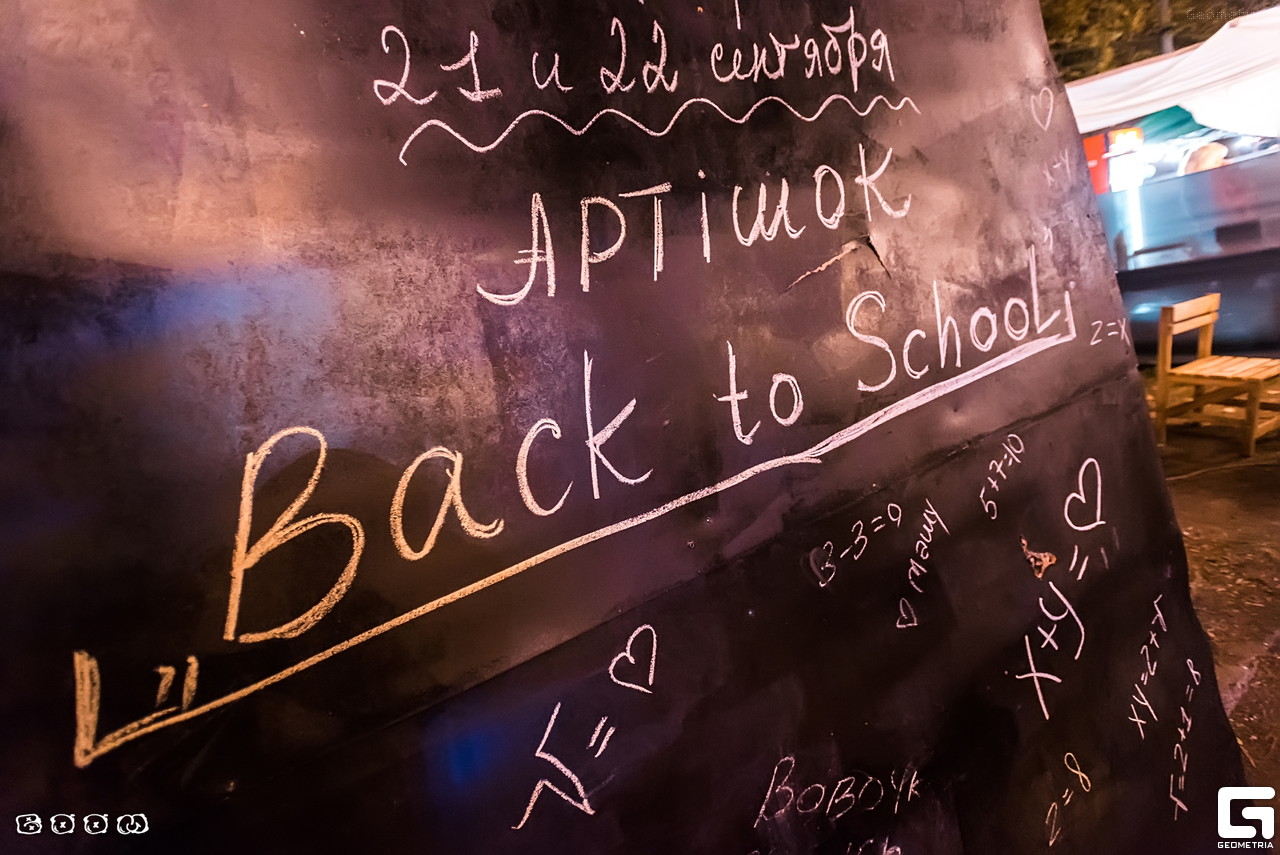 21 и 22 сентября
АРТІШОК
Back to School
z=x
5+7=10
В-3=9
машу
x+y=
xy=z+r
r=2+1=8
2=8
Вовочк
GEOMETRIA